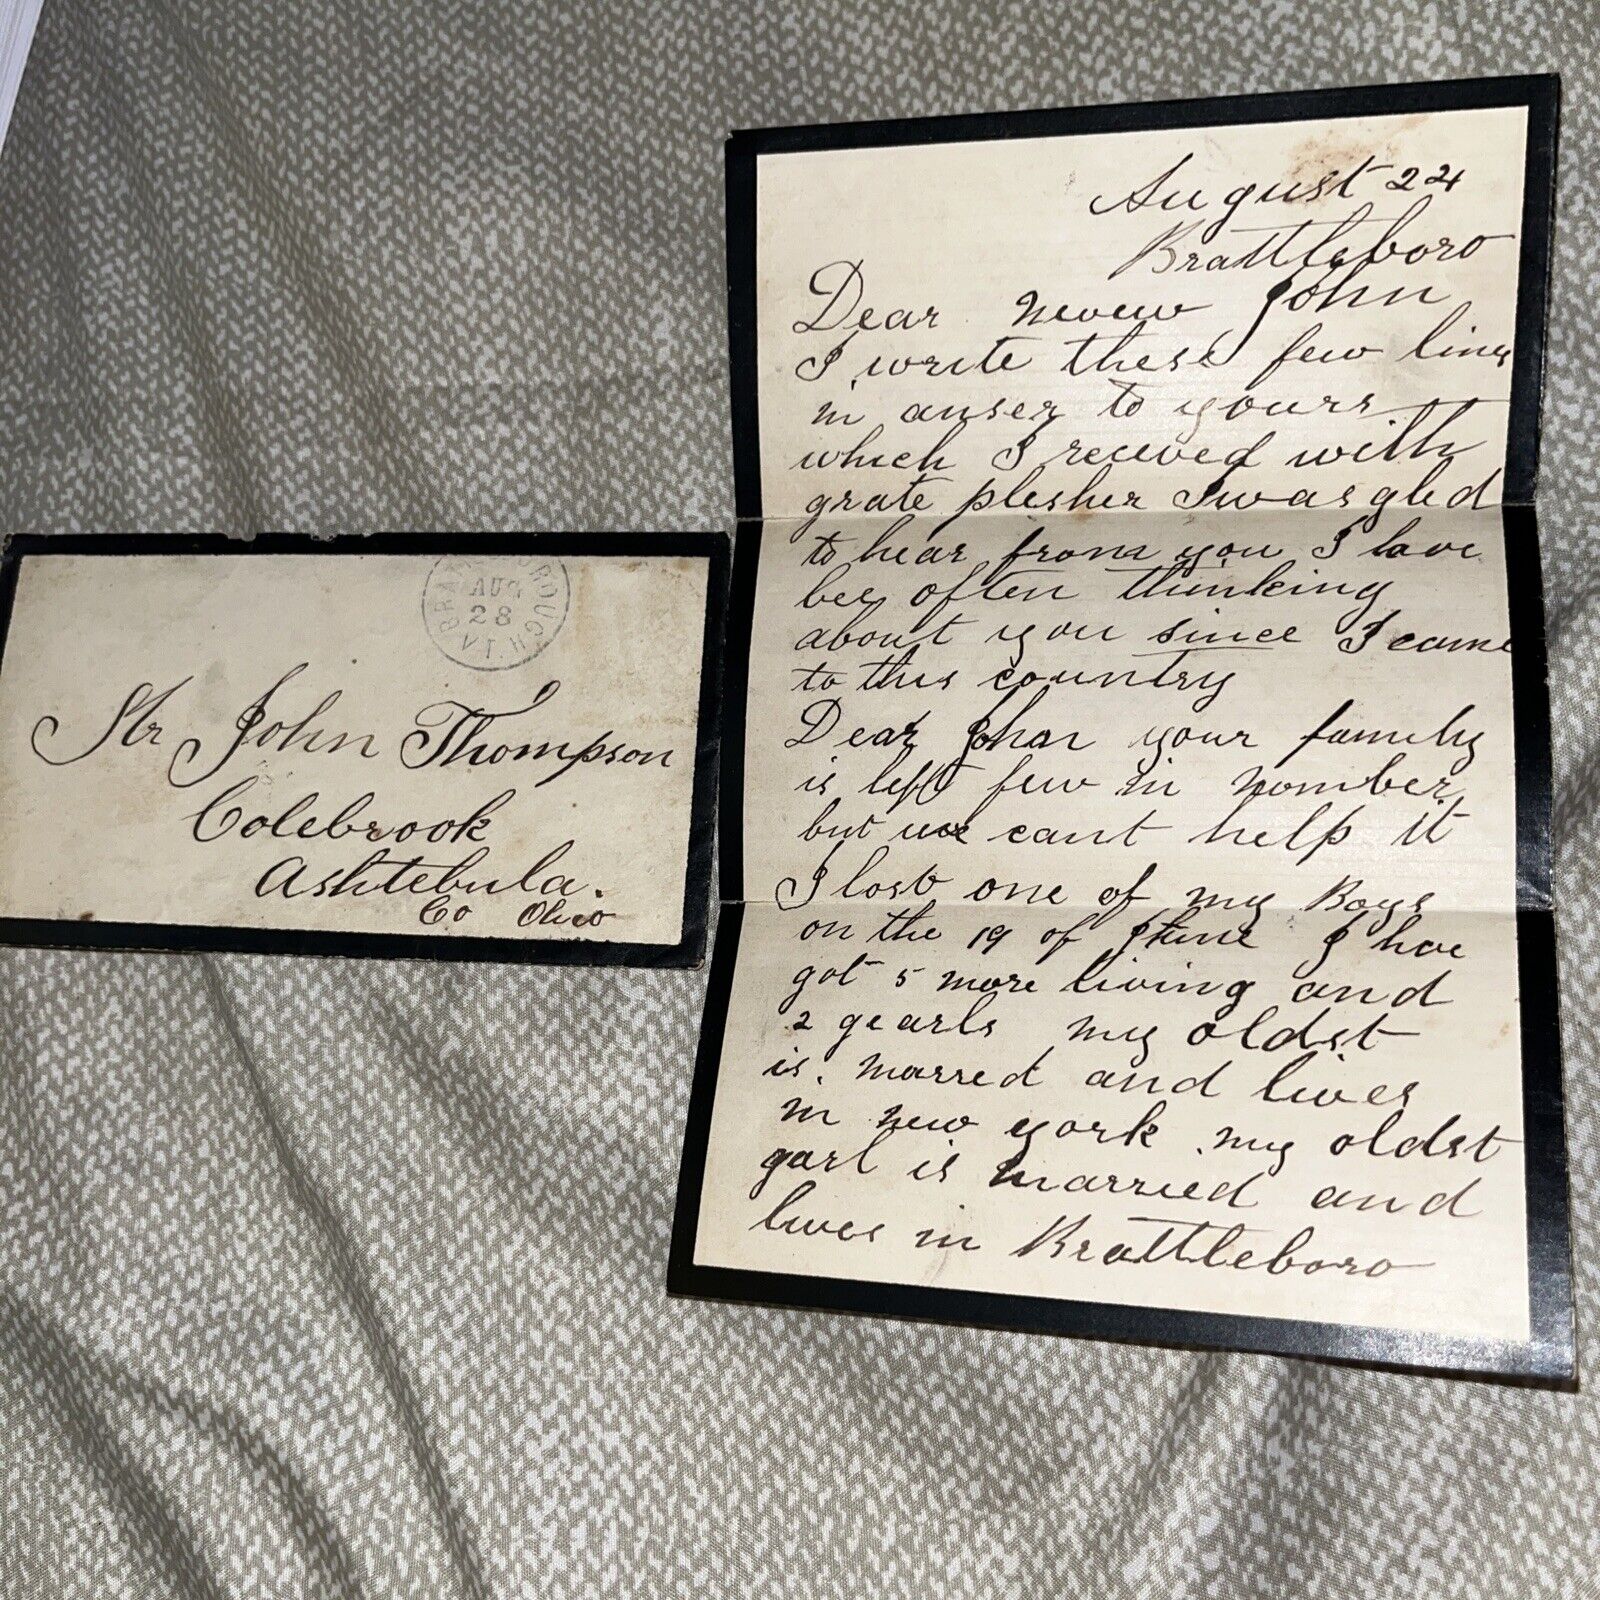 BRATTLEBOROUGH VT.
AUG
28
Mr John Thompson
Colebrook
Ashtebula.
Co Ohio
August 24
Brattleboro
Dear nevew John
I write these few lines
in anser to yours
which I receved with
grate plesher I was gled
to hear from you I have
bee often thinking
about you since I came
to this country
Dear Johan your family
is left few in nomber
but we cant help it
I lost one of my Boys
on the 19 of June I hve
got 5 more living and
2 gearls my oldst
is. marred and lives
in new york my oldst
garl is married and
lives in Brattleboro